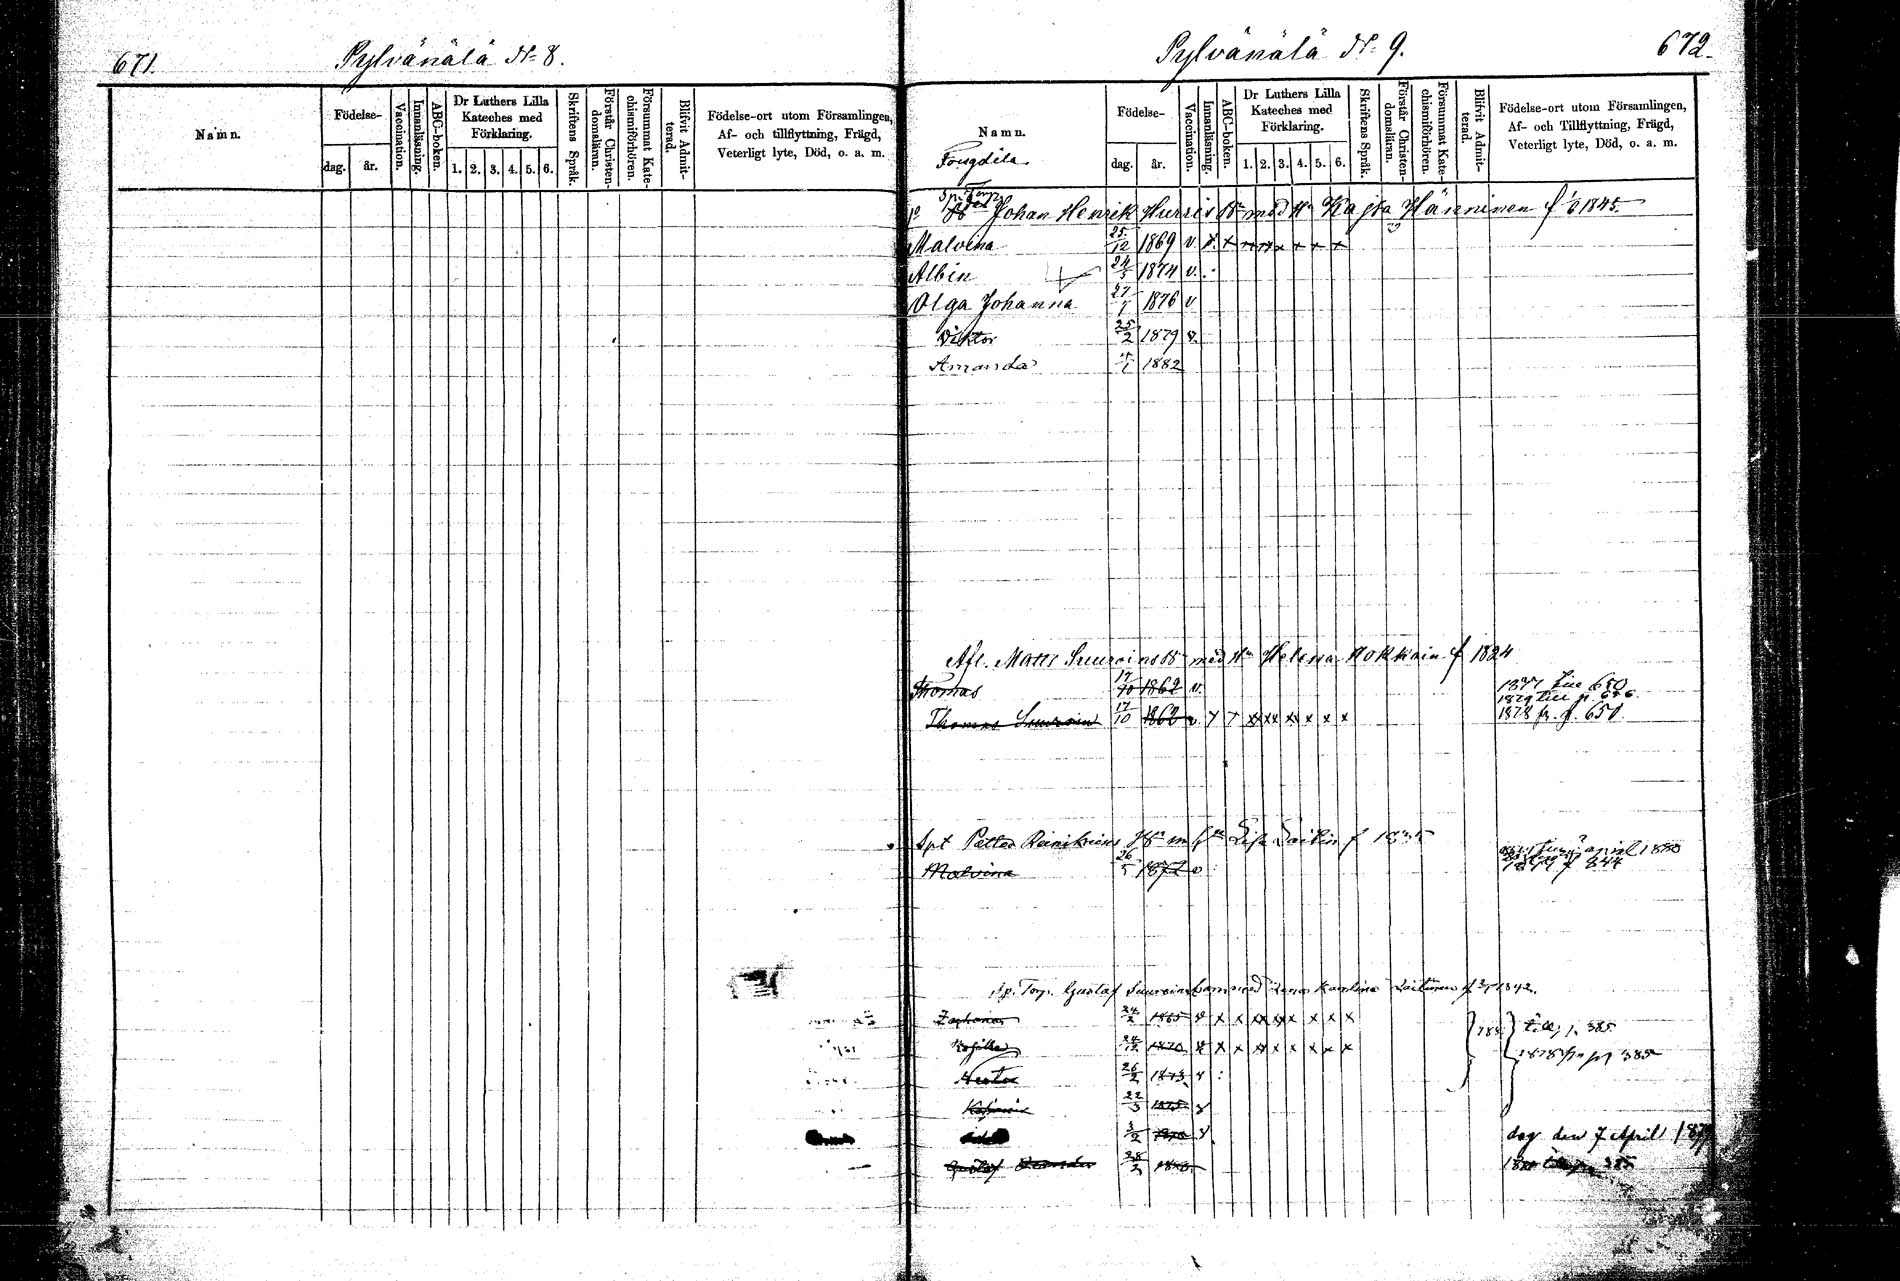 671.
Pylvänälä No 8.
Namn.
Födelse-
dag. år.
Vaccination.
Innanläsning.
ABC-boken.
Dr Luthers Lilla
Kateches med
Förklaring.
1. 2. 3. 4. 5. 6.
Skriftens Språk.
Förstår Christen-
domsläran.
Försummat Kate-
chismiförhören.
Blifvit Admit-
terad.
Födelse-ort utom Församlingen,
Af- och tillflyttning, Frägd,
Veterligt lyte, Död, o. a. m.
Pylvänälä No 9.
672.
Namn.
Födelse-
dag. år.
Vaccination.
Innanläsning.
ABC-boken.
Dr Luthers Lilla
Kateches med
Förklaring.
1. 2. 3. 4. 5. 6.
Skriftens Språk.
Förstår Christen-
domsläran.
Försummat Kate-
chismiförhören.
Blifvit Admit-
terad.
Födelse-ort utom Församlingen,
Af- och Tillflyttning, Frägd,
Veterligt lyte, Död, o. a. m.
Johan Henrik Hurris Bn med Hu Kajsa Hänninen f 1845.
Malvina 25/12 1869 v. x + + + + + +
Albin 24/5 1874 v.
Olga Johanna 27/1 1876 v
Viktor 25/2 1879 v.
Amanda 1882
Afl. Matts Suuroins Bn med Hu Helena Kokkain f 1824
Thomas 17/10 1862 v. 1877 till 650
1879 till p. 646
Thomas Suuroin 17/10 1862 v x x x x x x 1878 fr. p. 650.
Petter Reinikains Bn m Lisa Laitin f 1835
april 1880
Malvina 26/5 1872 v 844
Sp. Torp. Gustaf Suuroins barn med Lena Karolina Laitinen f 1842.
24/2 1865 v x x xx xx x x x till p. 385
1870 x x x x x x x 1878 fr p 385
Nestor 26/2 1873 v
22/3 1875 v
3/2 v dog den 7 April 1877
Gustaf 28/2 385